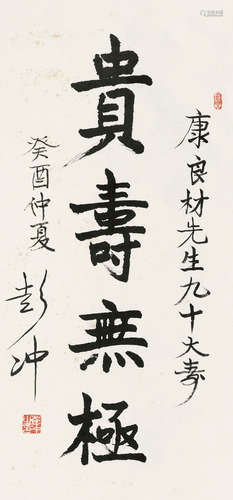 康良材先生九十大寿
貴壽無極
癸酉仲夏
彭冲